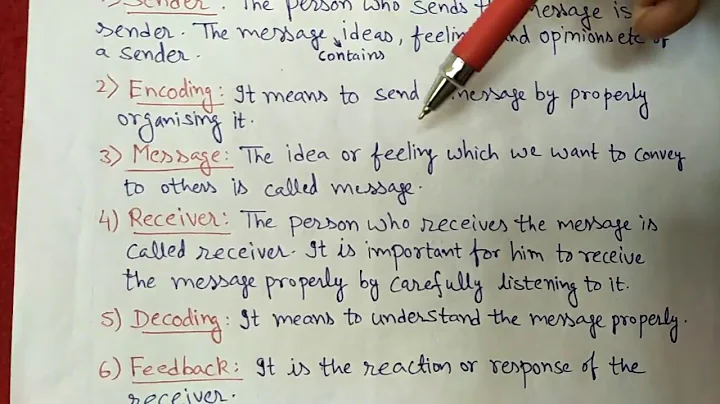 1) Sender: The person who sends the message is
sender. The message ideas, feelin and opinions etc of
contains
a sender.
2) Encoding: It means to send message by properly
organising it.
3) Message: The idea or feeling which we want to convey
to others is called message.
4) Receiver: The person who receives the message is
called receiver. It is important for him to receive
the message properly by carefully listening to it.
5) Decoding: It means to understand the message properly.
6) Feedback: It is the reaction or response of the
receiver.